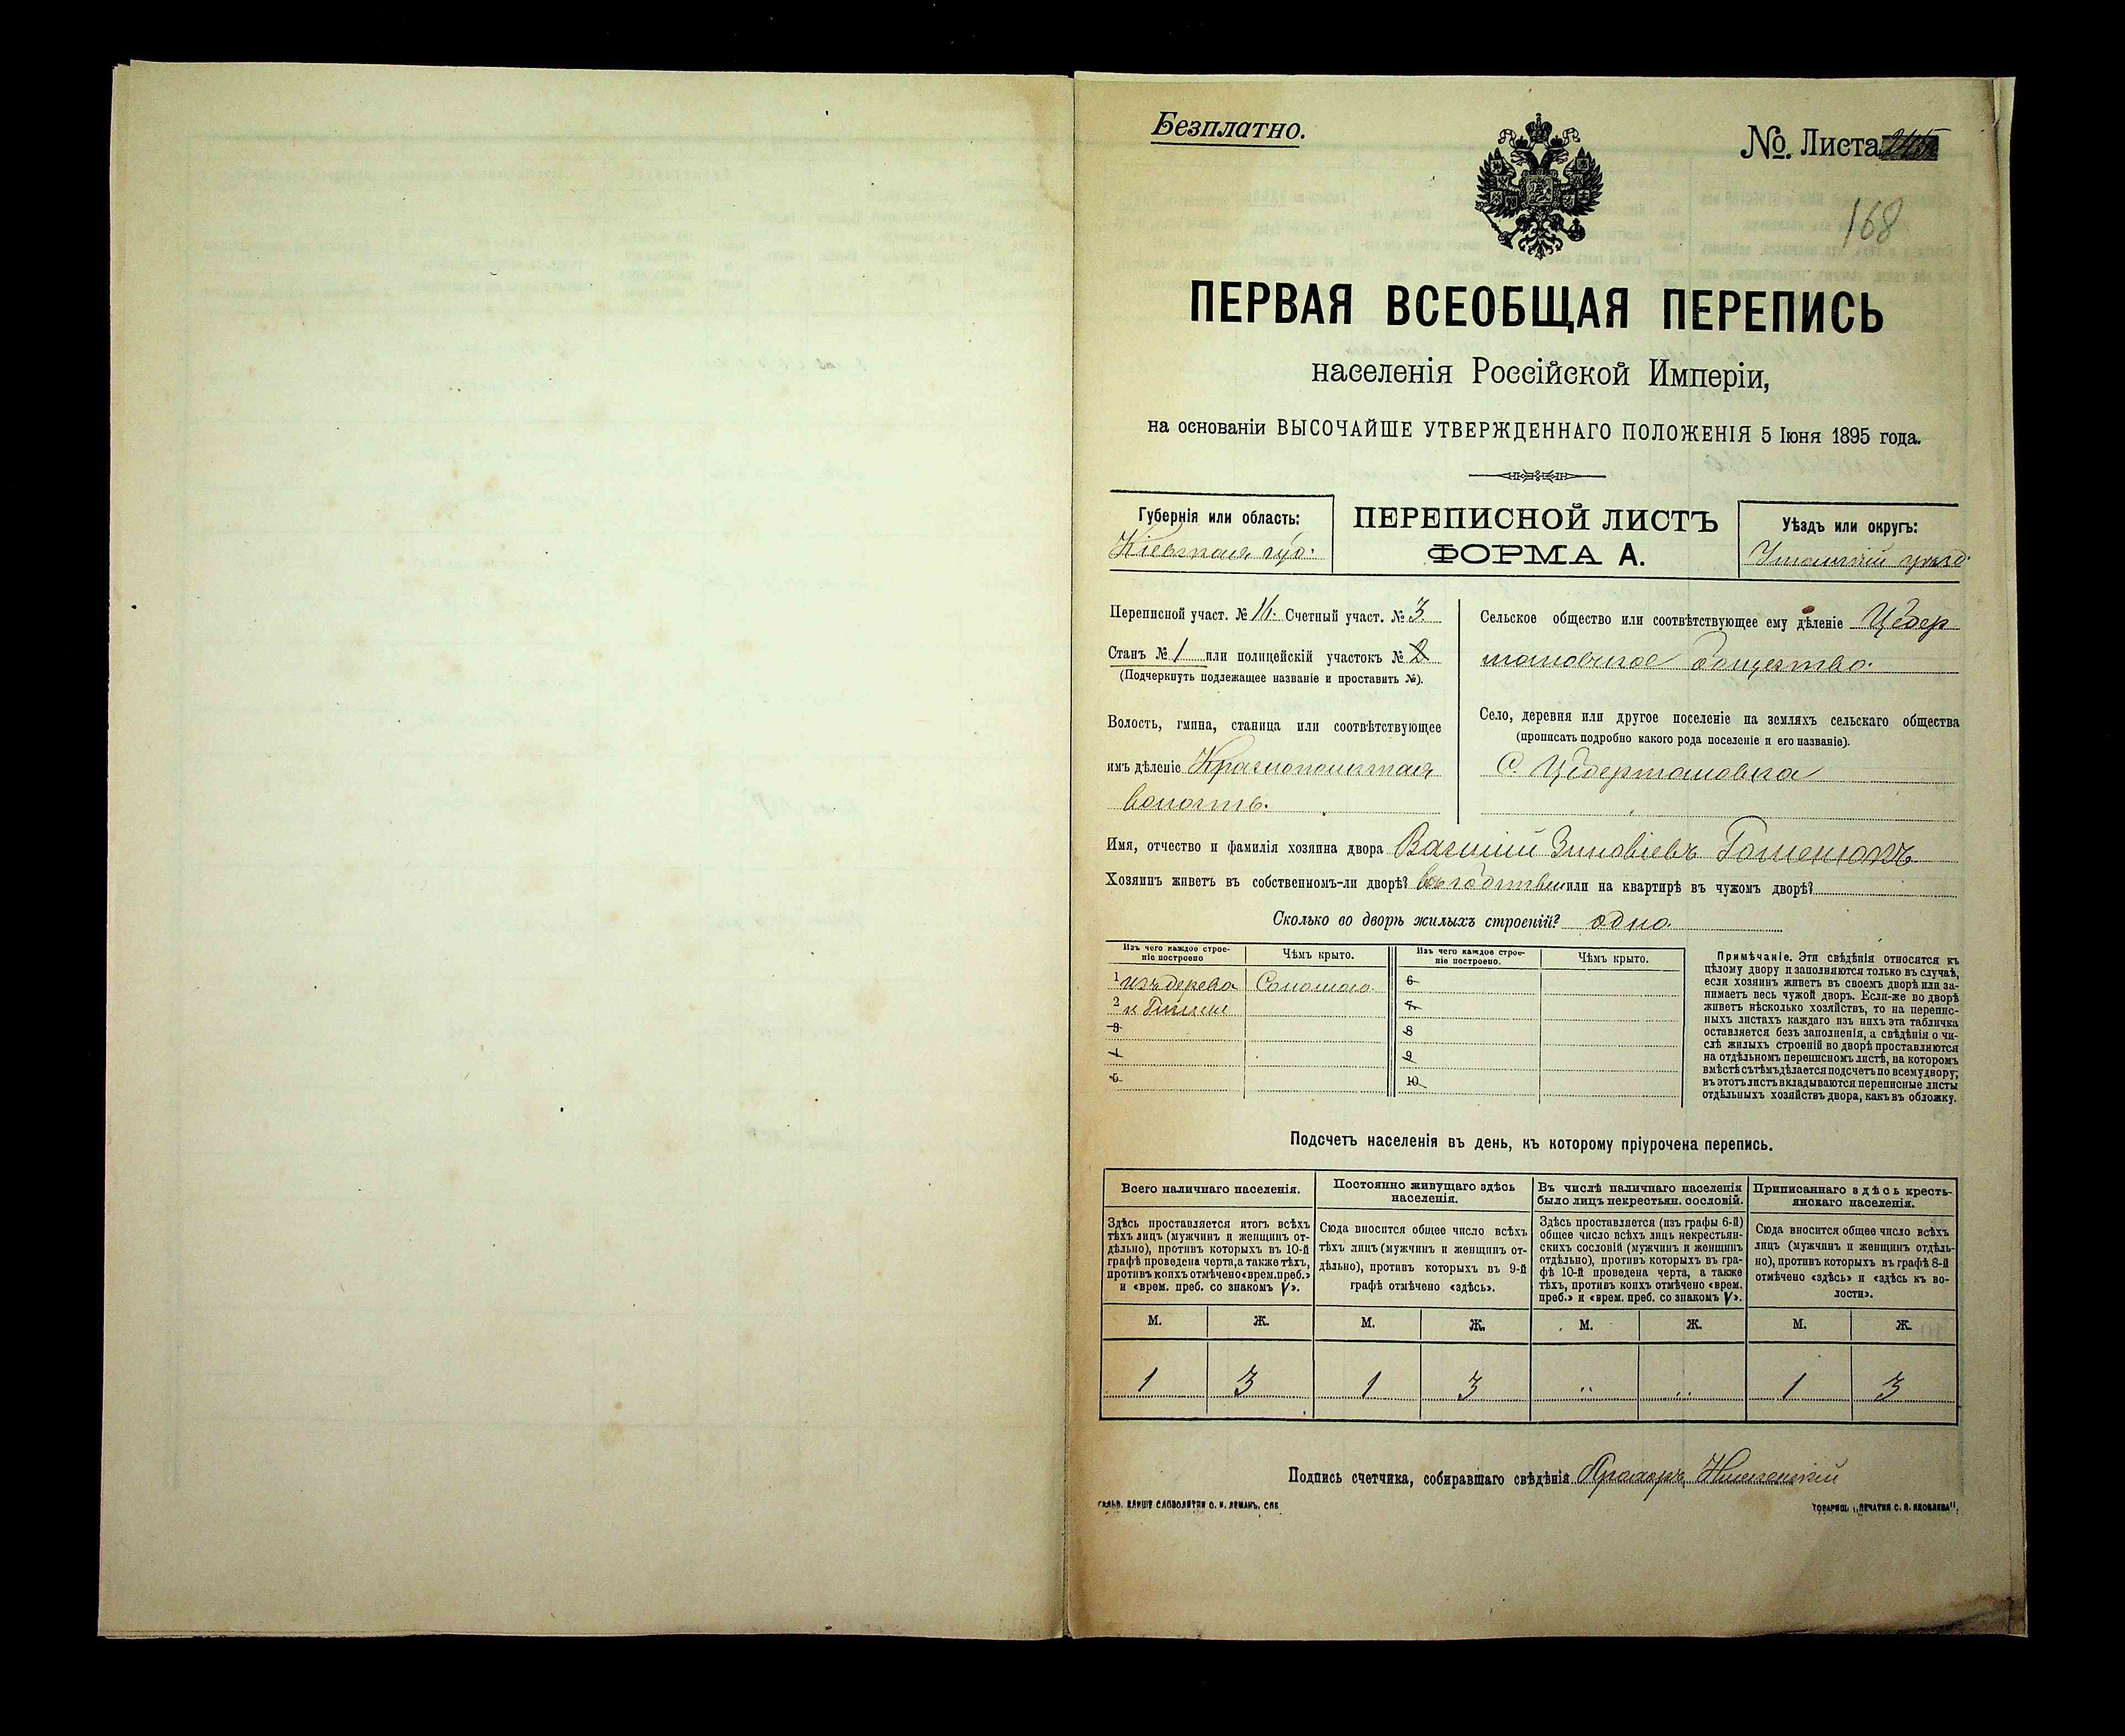 Безплатно.
№. Листа
168
ПЕРВАЯ ВСЕОБЩАЯ ПЕРЕПИСЬ
населенія Россійской Имперіи,
на основаніи ВЫСОЧАЙШЕ УТВЕРЖДЕННАГО ПОЛОЖЕНІЯ 5 Іюня 1895 года.
Губернія или область:
Кіевская губ.
ПЕРЕПИСНОЙ ЛИСТЪ
ФОРМА А.
Уѣздъ или округъ:
Уманскій уѣзд.
Переписной участ. № 14. Счетный участ. № 3.
Станъ № 1 или полицейскій участокъ № 2
(Подчеркнуть подлежащее названіе и проставить №).
Волость, гмина, станица или соотвѣтствующее
имъ дѣленіе Краснополкая
волость.
Сельское общество или соотвѣтствующее ему дѣленіе Цебер
мановское общество.
Село, деревня или другое поселеніе на земляхъ сельскаго общества
(прописать подробно какого рода поселеніе и его названіе).
С. Цебермановка
Имя, отчество и фамилія хозяина двора Василій Зиновіевъ
Хозяинъ живетъ въ собственномъ-ли дворѣ? или на квартирѣ въ чужомъ дворѣ?
Сколько во дворѣ жилыхъ строеній? одно
Изъ чего каждое строе-
ніе построено
Чѣмъ крыто.
Изъ чего каждое строе-
ніе построено.
Чѣмъ крыто.
1 изъ дерева Соломою. 6
2 и Глины 7
3 8
4 9
5 10
Примѣчаніе. Эти свѣдѣнія относятся къ
цѣлому двору и заполняются только въ случаѣ,
если хозяинъ живетъ въ своемъ дворѣ или за-
нимаетъ весь чужой дворъ. Если-же во дворѣ
живетъ нѣсколько хозяйствъ, то на перепис-
ныхъ листахъ каждаго изъ нихъ эта табличка
оставляется безъ заполненія, а свѣдѣнія о чи-
слѣ жилыхъ строеній во дворѣ проставляются
на отдѣльномъ переписномъ листѣ, на которомъ
вмѣстѣ съ тѣмъ дѣлается подсчетъ по всему двору;
въ этотъ листъ вкладываются переписные листы
отдѣльныхъ хозяйствъ двора, какъ въ обложку.
Подсчетъ населенія въ день, къ которому пріурочена перепись.
Всего наличнаго населенія.
Здѣсь проставляется итогъ всѣхъ
тѣхъ лицъ (мужчинъ и женщинъ от-
дѣльно), противъ которыхъ въ 10-й
графѣ проведена черта, а также тѣхъ,
противъ коихъ отмѣчено «врем. преб.»
и «врем. преб. со знакомъ V».
Постоянно живущаго здѣсь
населенія.
Сюда вносится общее число всѣхъ
тѣхъ лицъ (мужчинъ и женщинъ от-
дѣльно), противъ которыхъ въ 9-й
графѣ отмѣчено «здѣсь».
Въ числѣ наличнаго населенія
было лицъ некрестьян. сословій.
Здѣсь проставляется (изъ графы 6-й)
общее число всѣхъ лицъ некрестьян-
скихъ сословій (мужчинъ и женщинъ
отдѣльно), противъ которыхъ въ гра-
фѣ 10-й проведена черта, а также
тѣхъ, противъ коихъ отмѣчено «врем.
преб.» и «врем. преб. со знакомъ V».
Приписаннаго здѣсь кресть-
янскаго населенія.
Сюда вносится общее число всѣхъ
лицъ (мужчинъ и женщинъ отдѣль-
но), противъ которыхъ въ графѣ 8-й
отмѣчено «здѣсь» и «здѣсь къ во-
лости».
М. Ж. М. Ж. М. Ж. М. Ж.
1 3 1 3 " " 1 3
Подпись счетчика, собиравшаго свѣдѣнія Прохоръ
ГАЛЬВ. КЛИШЕ СЛОВОЛИТНИ О. И. ЛЕМАНЪ, СПБ
ТОВАРИЩ. „ПЕЧАТНЯ С. П. ЯКОВЛЕВА".